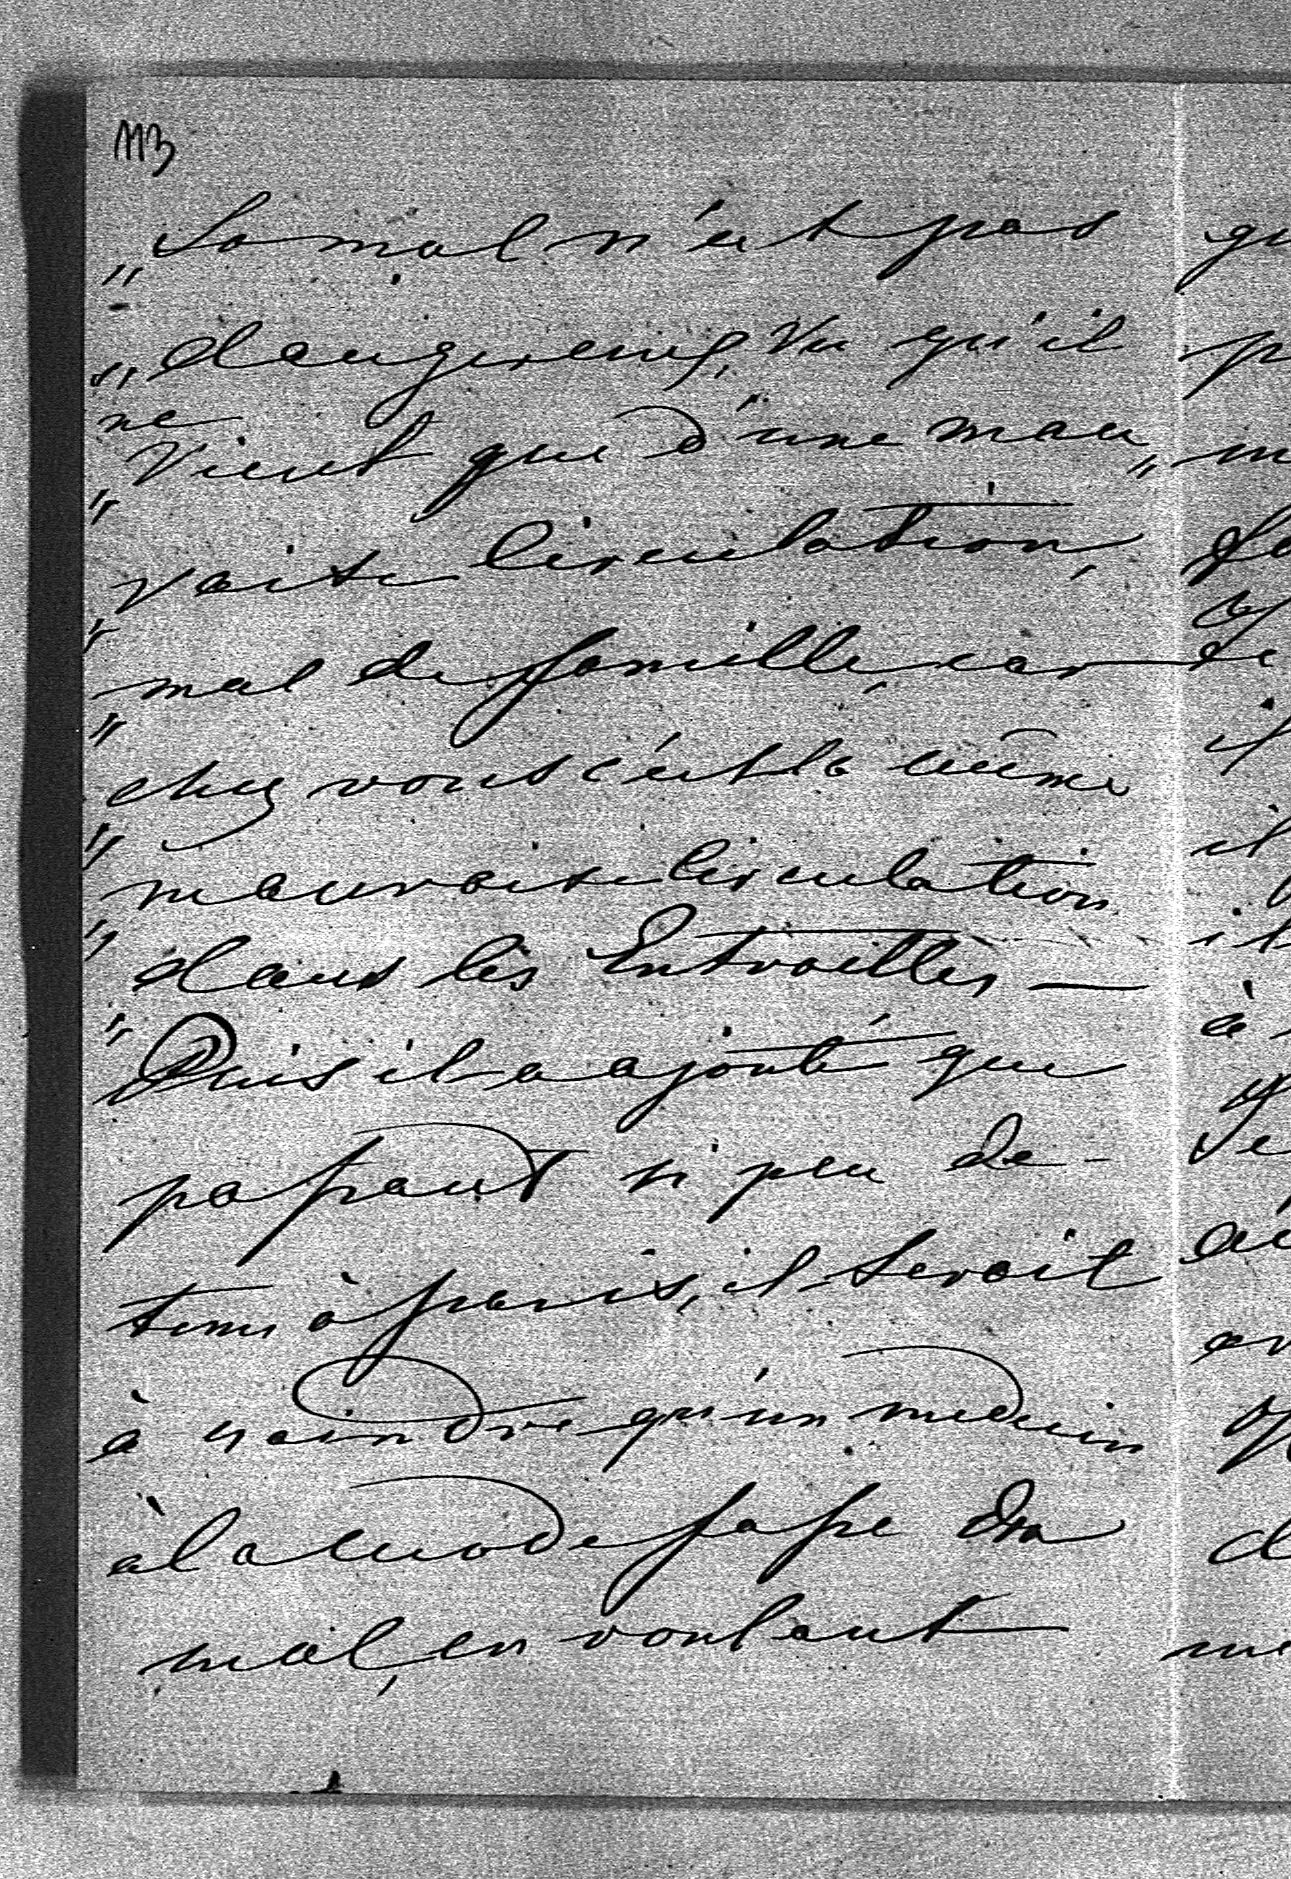 113
„ So mal n'est pas
„ dangereux, Vu qu'il
ne
„ Vient que d'une mau„
„ vaise Circulation,
„ mal de famille, car
„ chez vous c'est la même
„ mauvaise Circulation
„ dans les Entrailles —
„ Puis il a ajouté que
passant si peu de-
tems à paris, il seroit
à craindre qu'un medecin
à la mode fasse du
mal, en voulant